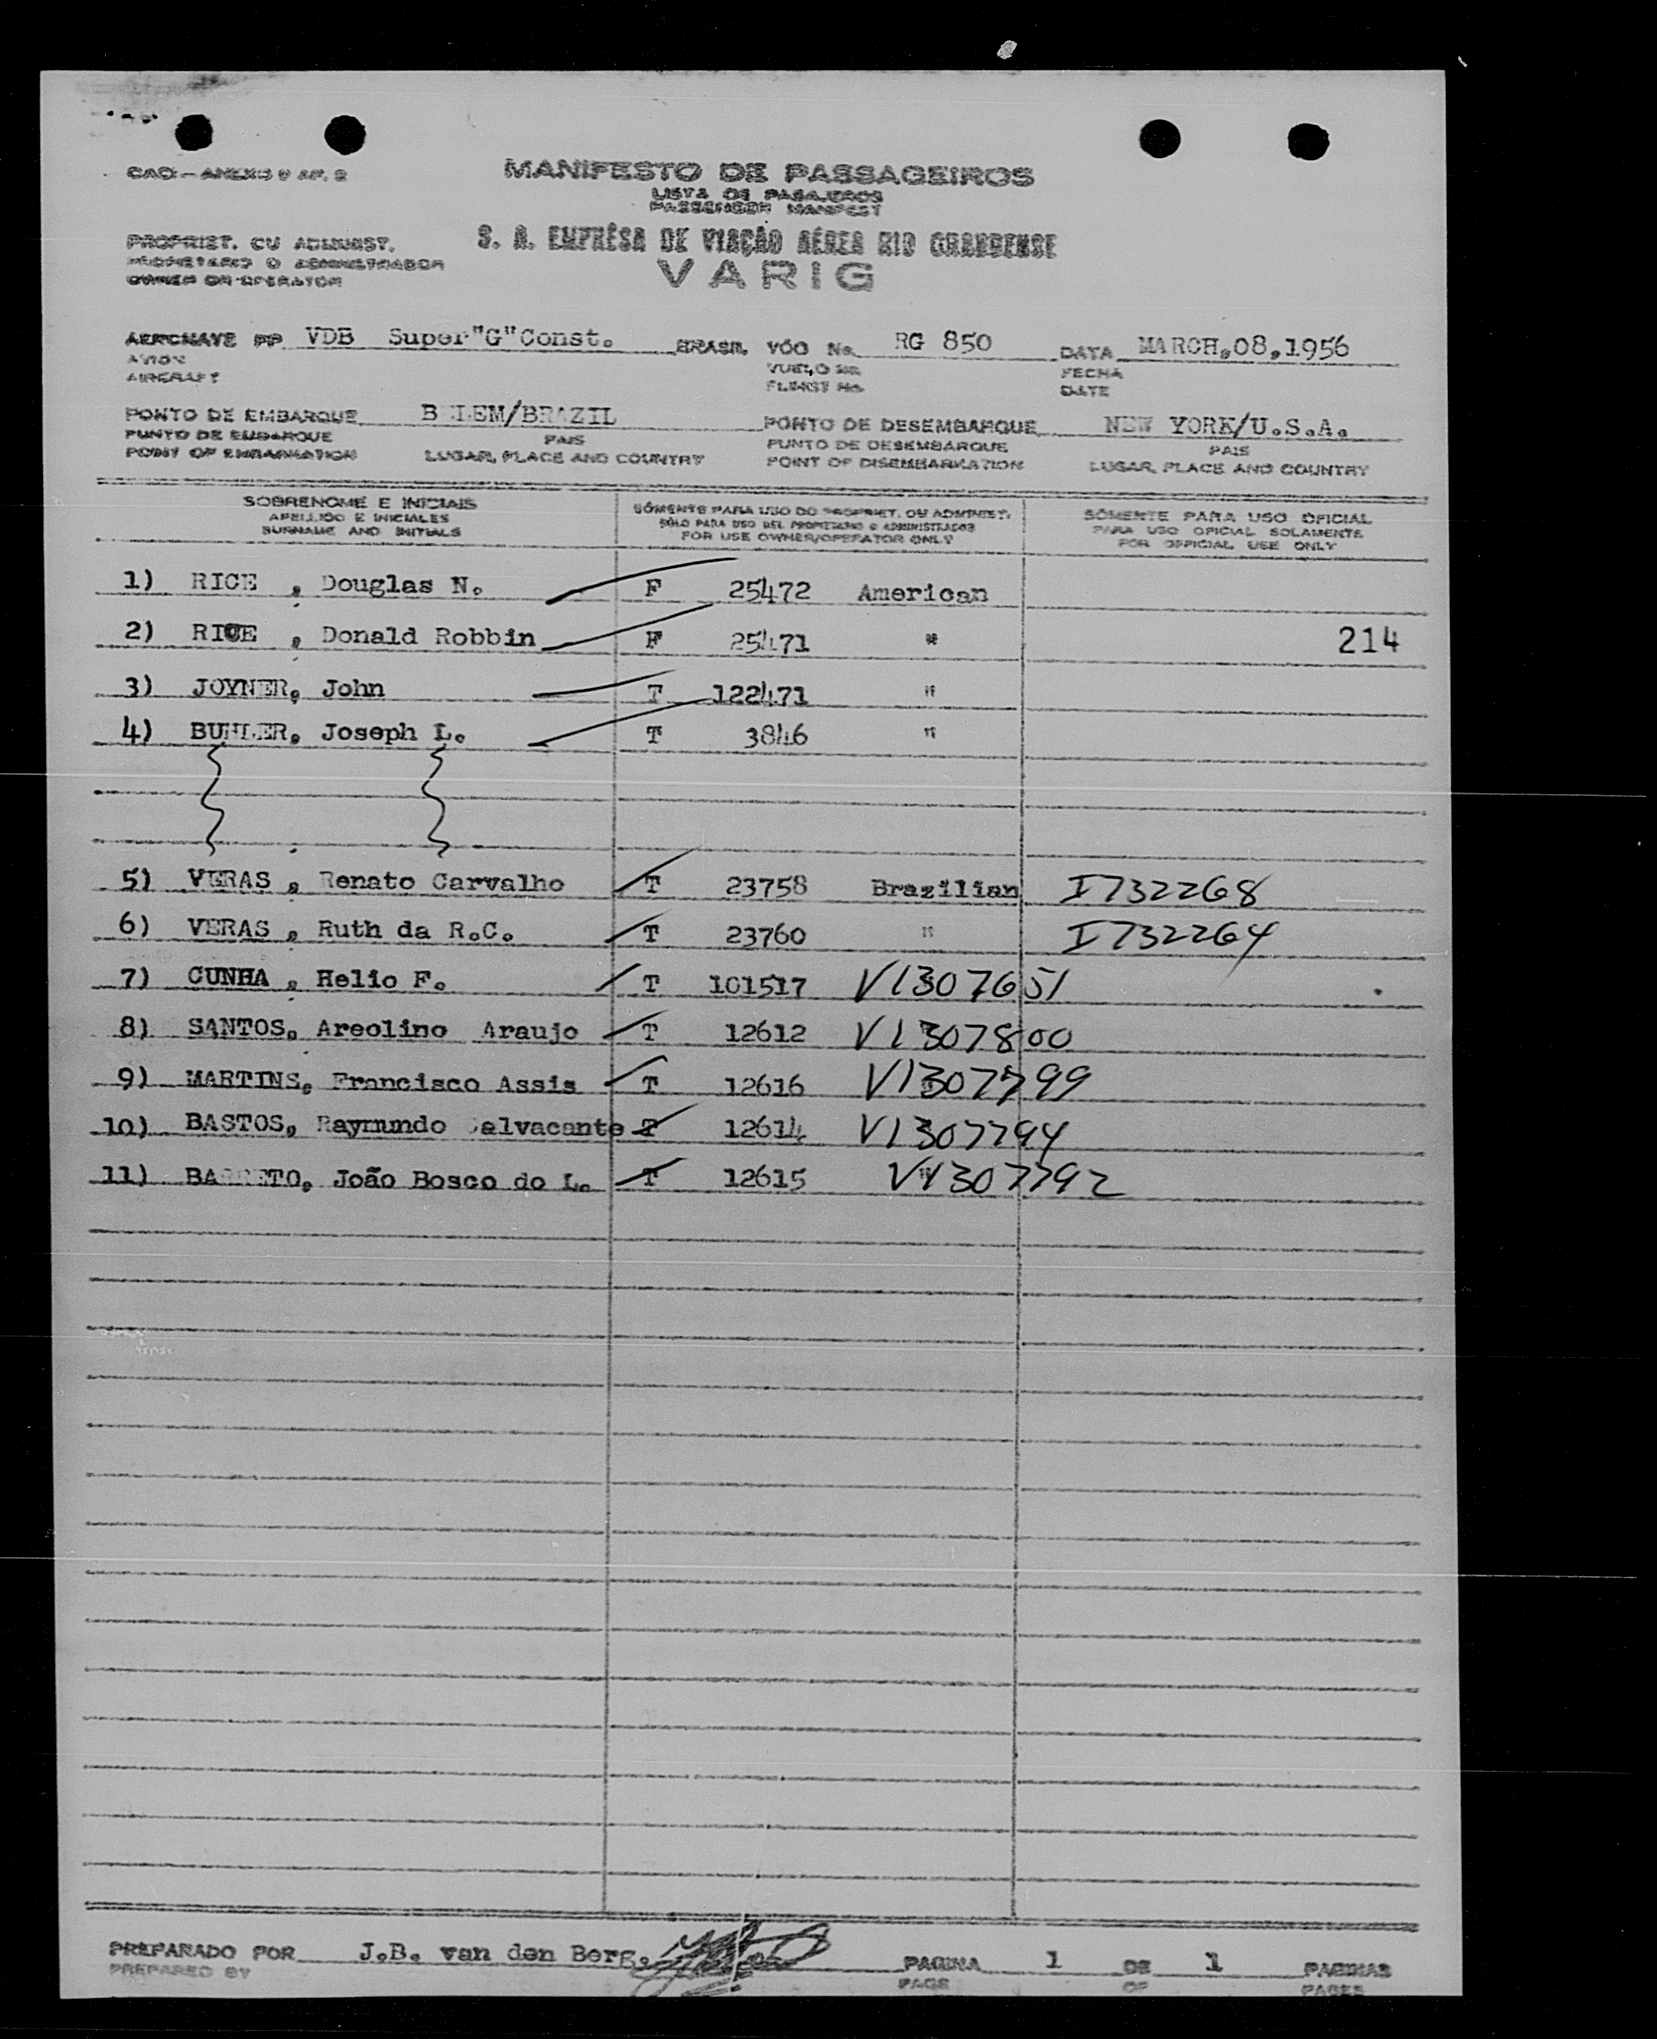 MANIFESTO DE PASSAGEIROS
LISTA DE PASAJEROS
PASSENGER MANIFEST
PROPRIET. OU ADMINIST.
PROPIETARIO O ADMINISTRADOR
OWNER OR OPERATOR
S. A. EMPRÊSA DE VIAÇÃO AÉREA RIO GRANDENSE
VARIG
AERONAVE PP VDB Super"G"Const. BRASIL VÔO No. RG 850 DATA MARCH,08,1956
AVION VUELO No. FECHA
AIRCRAFT FLIGHT No. DATE
PONTO DE EMBARQUE BELEM/BRAZIL PONTO DE DESEMBARQUE NEW YORK/U.S.A.
PUNTO DE EMBARQUE PAIS PUNTO DE DESEMBARQUE PAIS
POINT OF EMBARKATION LUGAR, PLACE AND COUNTRY POINT OF DISEMBARKATION LUGAR, PLACE AND COUNTRY
SOBRENOME E INICIAIS SÓMENTE PARA USO DO PROPRIET. OU ADMINIST. SÓMENTE PARA USO OFICIAL
APELLIDO E INICIALES SÓLO PARA USO DEL PROPIETARIO O ADMINISTRADOR PARA USO OFICIAL SOLAMENTE
SURNAME AND INITIALS FOR USE OWNER/OPERATOR ONLY FOR OFFICIAL USE ONLY
1) RICE , Douglas N. F 25472 American
2) RICE , Donald Robbin F 25471 " 214
3) JOYNER, John T 122471 "
4) BUHLER, Joseph L. T 3846 "
5) VERAS , Renato Carvalho T 23758 Brazilian I732268
6) VERAS , Ruth da R.C. T 23760 " I732264
7) CUNHA , Helio F. T 101517 V1307651
8) SANTOS, Areolino Araujo T 12612 V1307800
9) MARTINS, Francisco Assis T 12616 V1307799
10) BASTOS, Raymundo Calvacante T 12614 V1307794
11) BARRETO, João Bosco do L. T 12615 V1307792
PREPARADO POR J.B. van den Berg. PAGINA 1 DE 1 PAGINAS
PREPARED BY PAGE OF PAGES